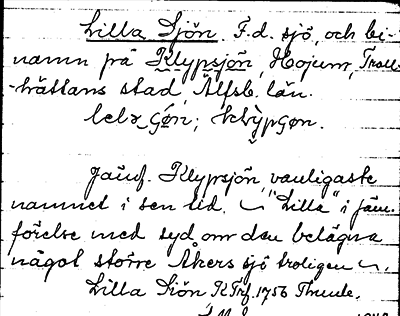 Lilla Sjön. F.d. sjö, och bi-
namn på Klypsjön, Hojum, Troll-
hättans stad, Älfsb. län.
Jämf. Klypsjön, vanligaste
namnet i sen tid. "Lilla" i jäm-
förelse med syd om den belägna
något större Åkers sjö troligen
Lilla Siön RTrf. 1756 Thunle.